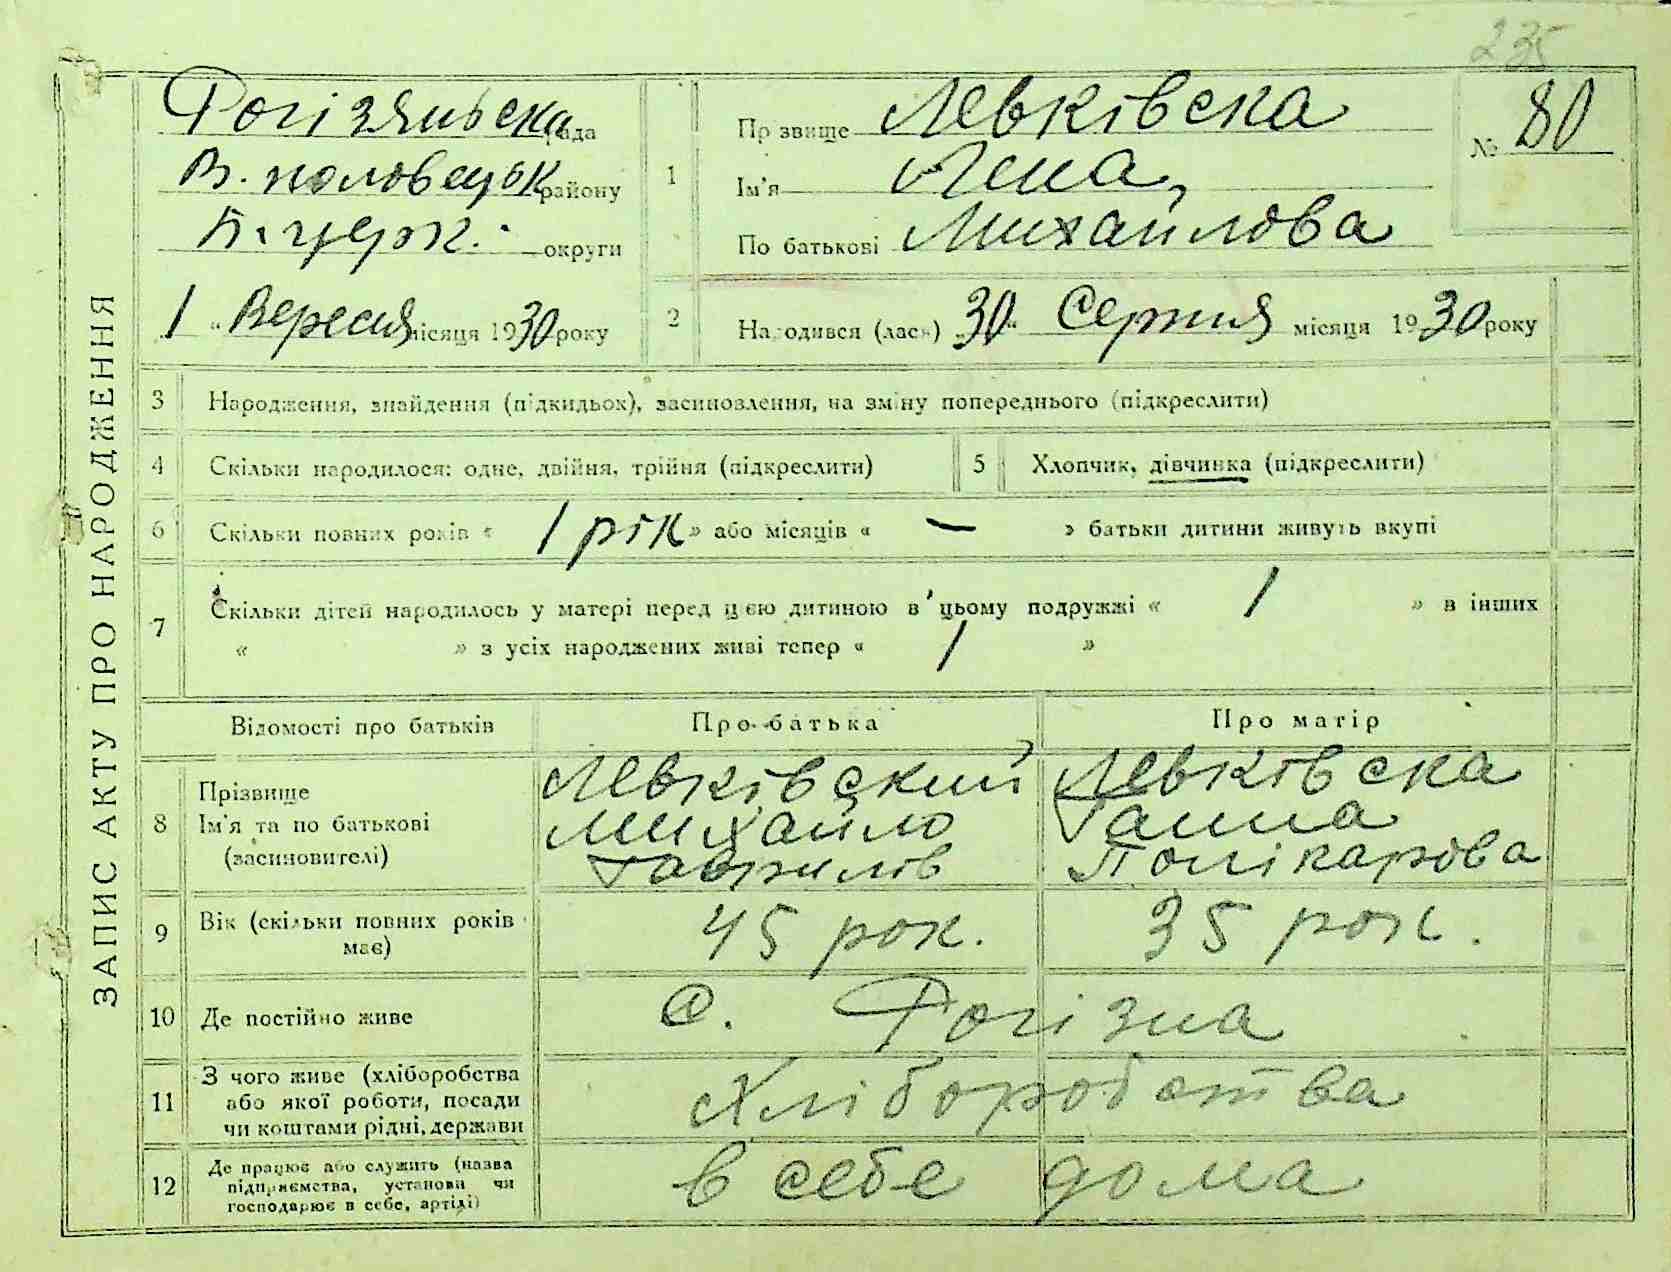 235
ЗАПИС АКТУ ПРО НАРОДЖЕННЯ
Рогізянська рада
В. половецьк району
Б. церк. округи
1 „ Вересня місяця 1930 року
1
Прізвище Левківска
Ім'я Лена,
По батькові Михайлова
№ 80
2
Народився (лася) „30“ Серпня місяця 1930 року
3 Народження, знайдення (підкидьок), засиновлення, на зміну попереднього (підкреслити)
4 Скільки народилося: одне, двійня, трійня (підкреслити)
5 Хлопчик, дівчинка (підкреслити)
6 Скільки повних років « 1 рік » або місяців « — » батьки дитини живуть вкупі
7 Скільки дітей народилось у матері перед цією дитиною в цьому подружжі « 1 » в інших
« » з усіх народжених живі тепер « 1 »
Відомості про батьків Про батька Про матір
8 Прізвище
Ім'я та по батькові
(засиновителі)
Левківский
Михайло
Гаврилів
Левківска
Ганна
Полікарпова
9 Вік (скільки повних років
має)
45 рок. 35 рок.
10 Де постійно живе С. Рогізна
11 З чого живе (хліборобства
або якої роботи, посади
чи коштами рідні, держави
Хліборобства
12 Де працює або служить (назва
підприємства, установи чи
господарює в себе, артілі)
в себе дома